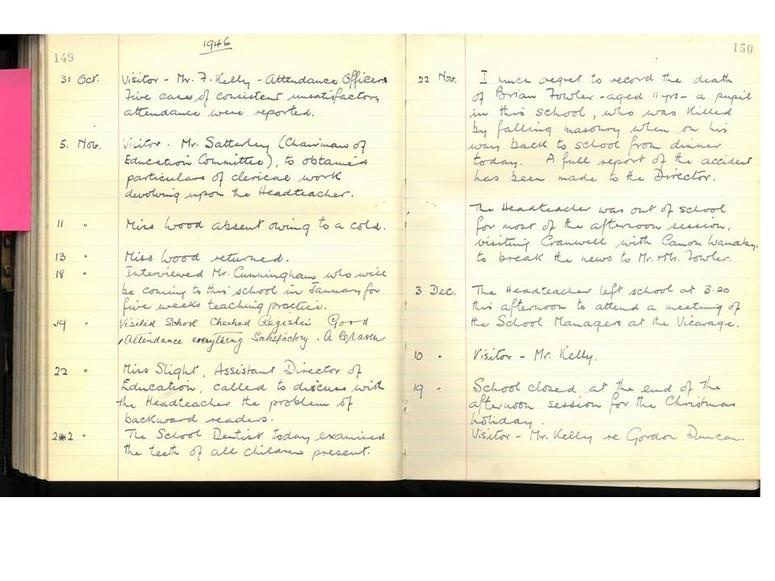 1946
149
31 Oct. Visitor - Mr. F. Kelly - Attendance Officer
Five cases of consistent unsatisfactory
attendance were reported.
5. Nov. Visitor. Mr. Satterley (Chairman of
Education Committee), to obtain
particulars of clerical work
devolving upon the Headteacher.
11 " Miss Wood absent owing to a cold.
13 " Miss Wood returned.
18 " Interviewed Mr. Cunningham who will
be coming to this school in January for
five weeks teaching practice.
19 " Visited School Checked Register Good
Attendance everything Satisfactory. A
22 " Miss Slight, Assistant Director of
Education, called to discuss with
the Headteacher the problem of
backward readers.
22 " The School Dentist today examined
the teeth of all children present.
150
22 Nov. I much regret to record the death
of Brian Fowler - aged 11 yrs - a pupil
in this school, who was killed
by falling masonry when on his
way back to school from dinner
today. A full report of the accident
has been made to the Director.
The Headteacher was out of school
for most of the afternoon session,
visiting Cranwell with Canon
to break the news to Mr. Mrs. Fowler.
3 Dec. The Headteacher left school at 3.20
this afternoon to attend a meeting of
the School Managers at the Vicarage.
10 " Visitor - Mr. Kelly.
19 " School closed at the end of the
afternoon session for the Christmas
holiday.
Visitor - Mr. Kelly re Gordon Duncan.